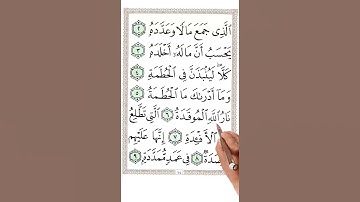 الَّذِى جَمَعَ مَالًا وَعَدَّدَهُ ٢
يَحْسَبُ أَنَّ مَالَهُ أَخْلَدَهُ ٣
كَلَّا لَيُنْبَذَنَّ فِى الْحُطَمَةِ ٤
وَمَا أَدْرَىٰكَ مَا الْحُطَمَةُ ٥
نَارُ اللَّهِ الْمُوقَدَةُ ٦ الَّتِى تَطَّلِعُ
الْأَفْئِدَةِ ٧ إِنَّهَا عَلَيْهِم
٨ فِى عَمَدٍ مُّمَدَّدَةٍ ٩